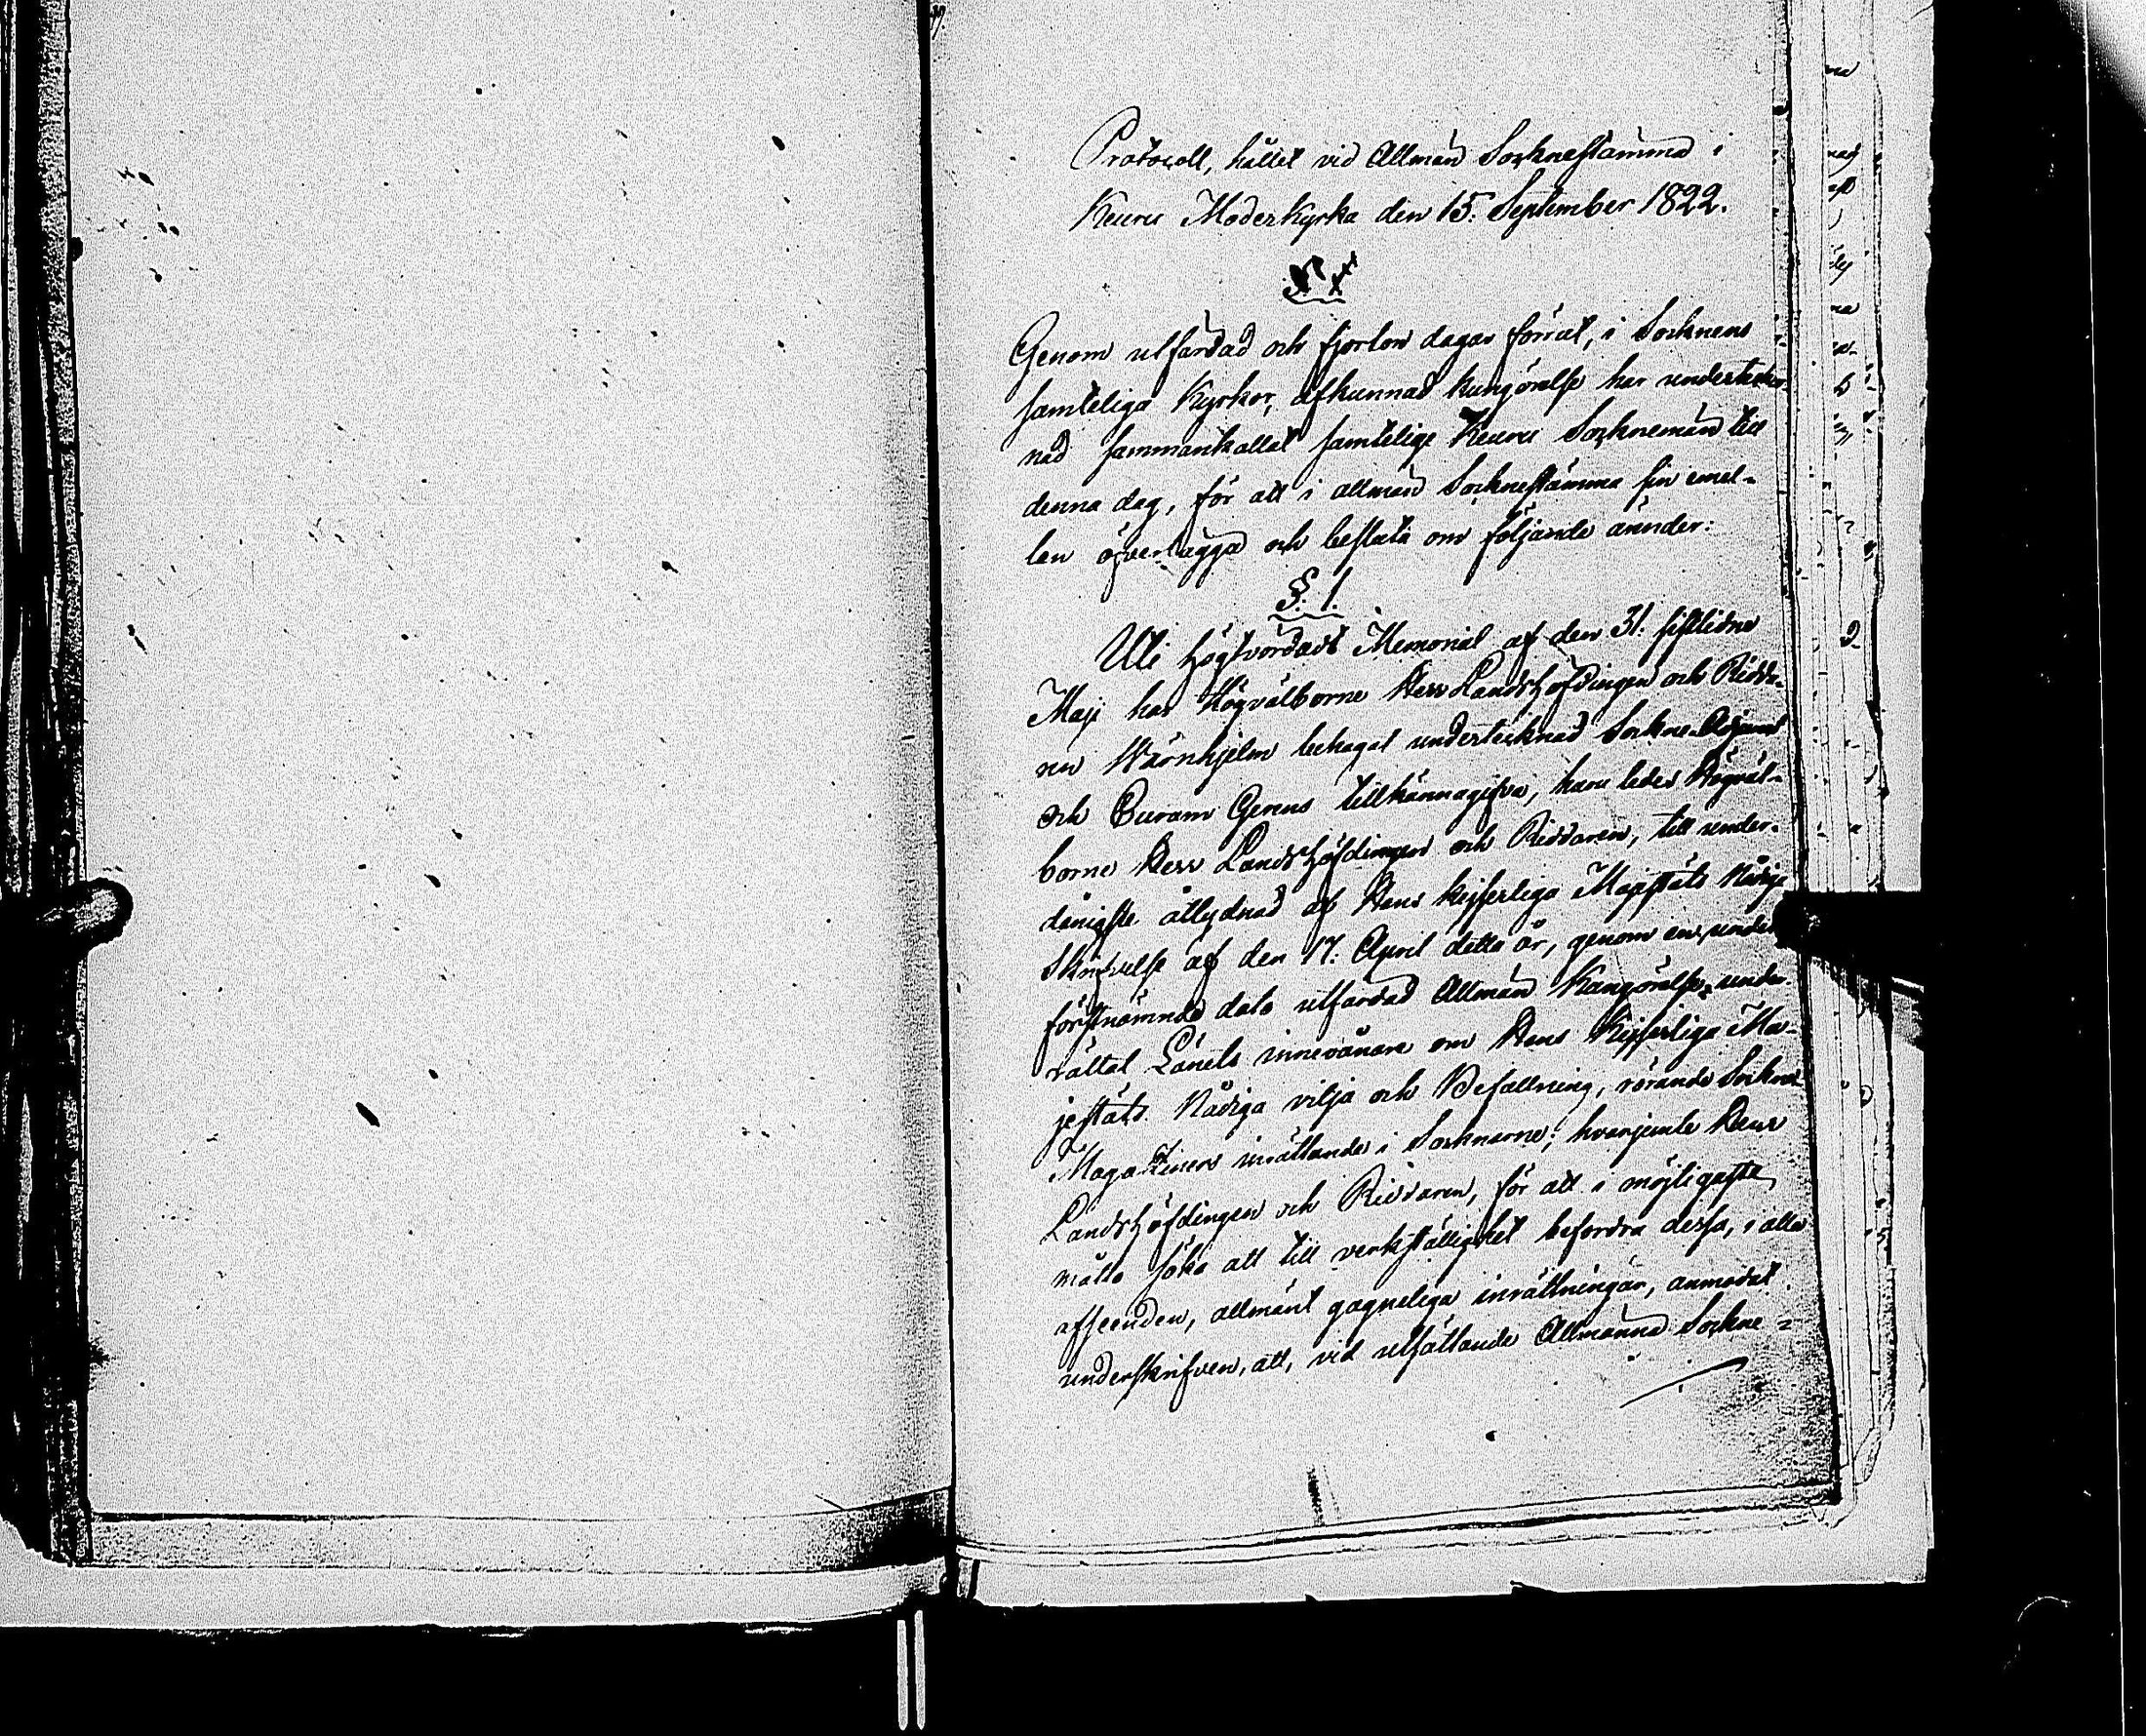 Protocoll, hållet vid Allmän Sockneftämma i
Keuru Moderkyrka den 15. September 1822.
Genom utfärdad och fjorton dagar förrut, i Socknens
samteliga Kyrkor, afkunnad kungörelse har underteck-
nad sammankallat samtelige Keuru Socknemän till
denna dag, för att i allmän Socknestämma sin emel-
lan öfverlägga och besluta om följande ämnder:
§. 1.
Uti högtvördadt Memorial af den 31. sistlidne
Maji har Högvälborne Herr Landshöfdingen och Ridda-
ren Wärnhjelm behagat undertecknad Sockne Adjunct
och Curam Gerens tillkännagifva, huru ledes Högväl-
borne Herr Landshöfdingen och Riddaren, till under-
dånigste åtlydnad af Hans Kejserliga Majestäts Nådiga
Skrifvelse af den 17. April detta år, genom en, under
förstnämnde dato utfärdad Allmän Kungörelse, under-
rättat Länets innevånare om Hans Kejserliga Ma-
jestäts Nådiga vilja och Befallning, rörande Sockne
Magaziners inrättande i Socknarne; hvarjemte Herr
Landshöfdingen och Riddaren, för att i möjligaste
måtto söka att till verkställighet befordra dessa, i alla
afseenden, allmänt gagneliga inrättningar, anmodat
underskrifven, att, vid utsättande Allmänna Sockne-